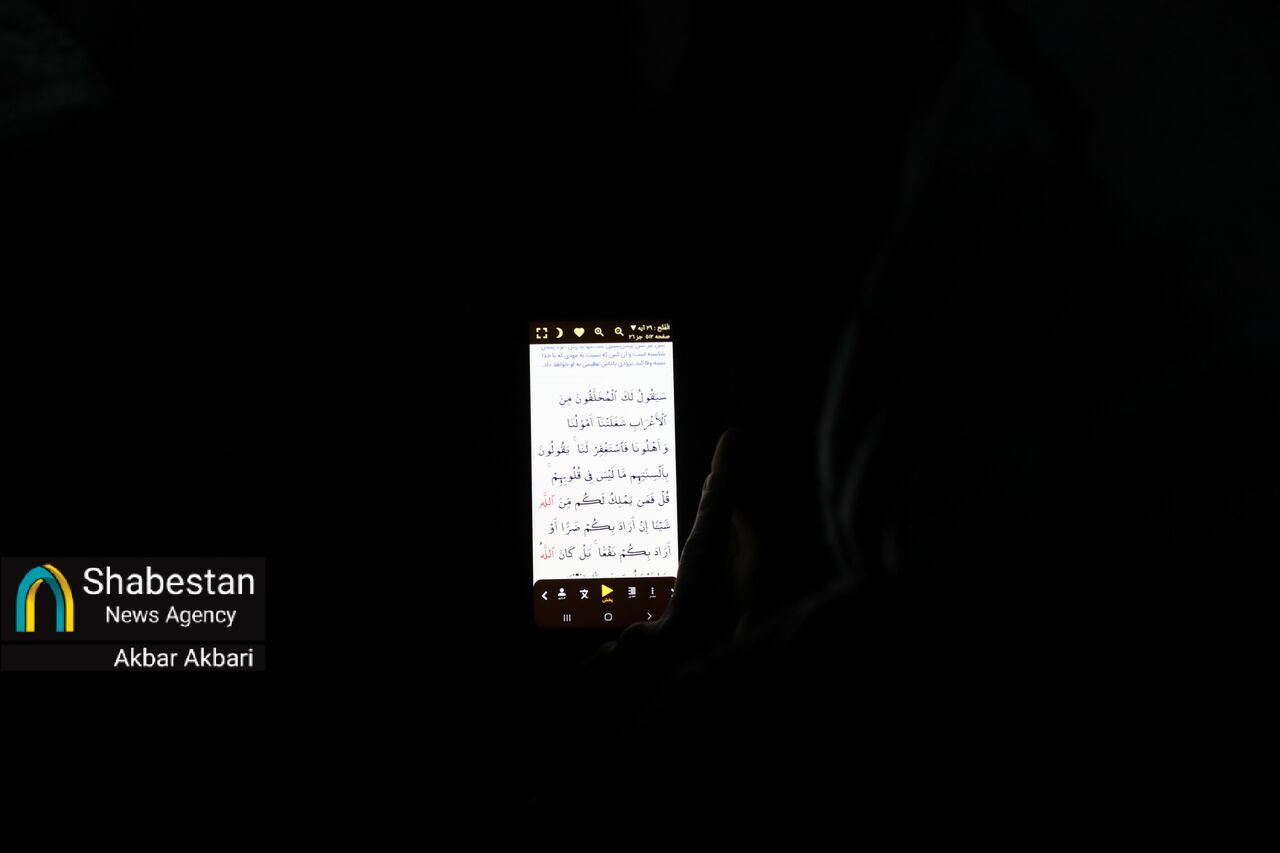 الفتح : ۲۹ آیه ▼
صفحه ۵۱۲ جز ۲۶
شکسته است؛ و آن کس که نسبت به عهدی که با خدا
بسته وفا کند، بزودی پاداش عظیمی به او خواهد داد.
سَيَقُولُ لَكَ ٱلْمُخَلَّفُونَ مِنَ
ٱلْأَعْرَابِ شَغَلَتْنَآ أَمْوَٰلُنَا
وَأَهْلُونَا فَٱسْتَغْفِرْ لَنَا ۚ يَقُولُونَ
بِأَلْسِنَتِهِم مَّا لَيْسَ فِى قُلُوبِهِمْ ۚ
قُلْ فَمَن يَمْلِكُ لَكُم مِّنَ ٱللَّهِ
شَيْـًٔا إِنْ أَرَادَ بِكُمْ ضَرًّا أَوْ
أَرَادَ بِكُمْ نَفْعًۢا ۚ بَلْ كَانَ ٱللَّهُ
پخش
Shabestan
News Agency
Akbar Akbari